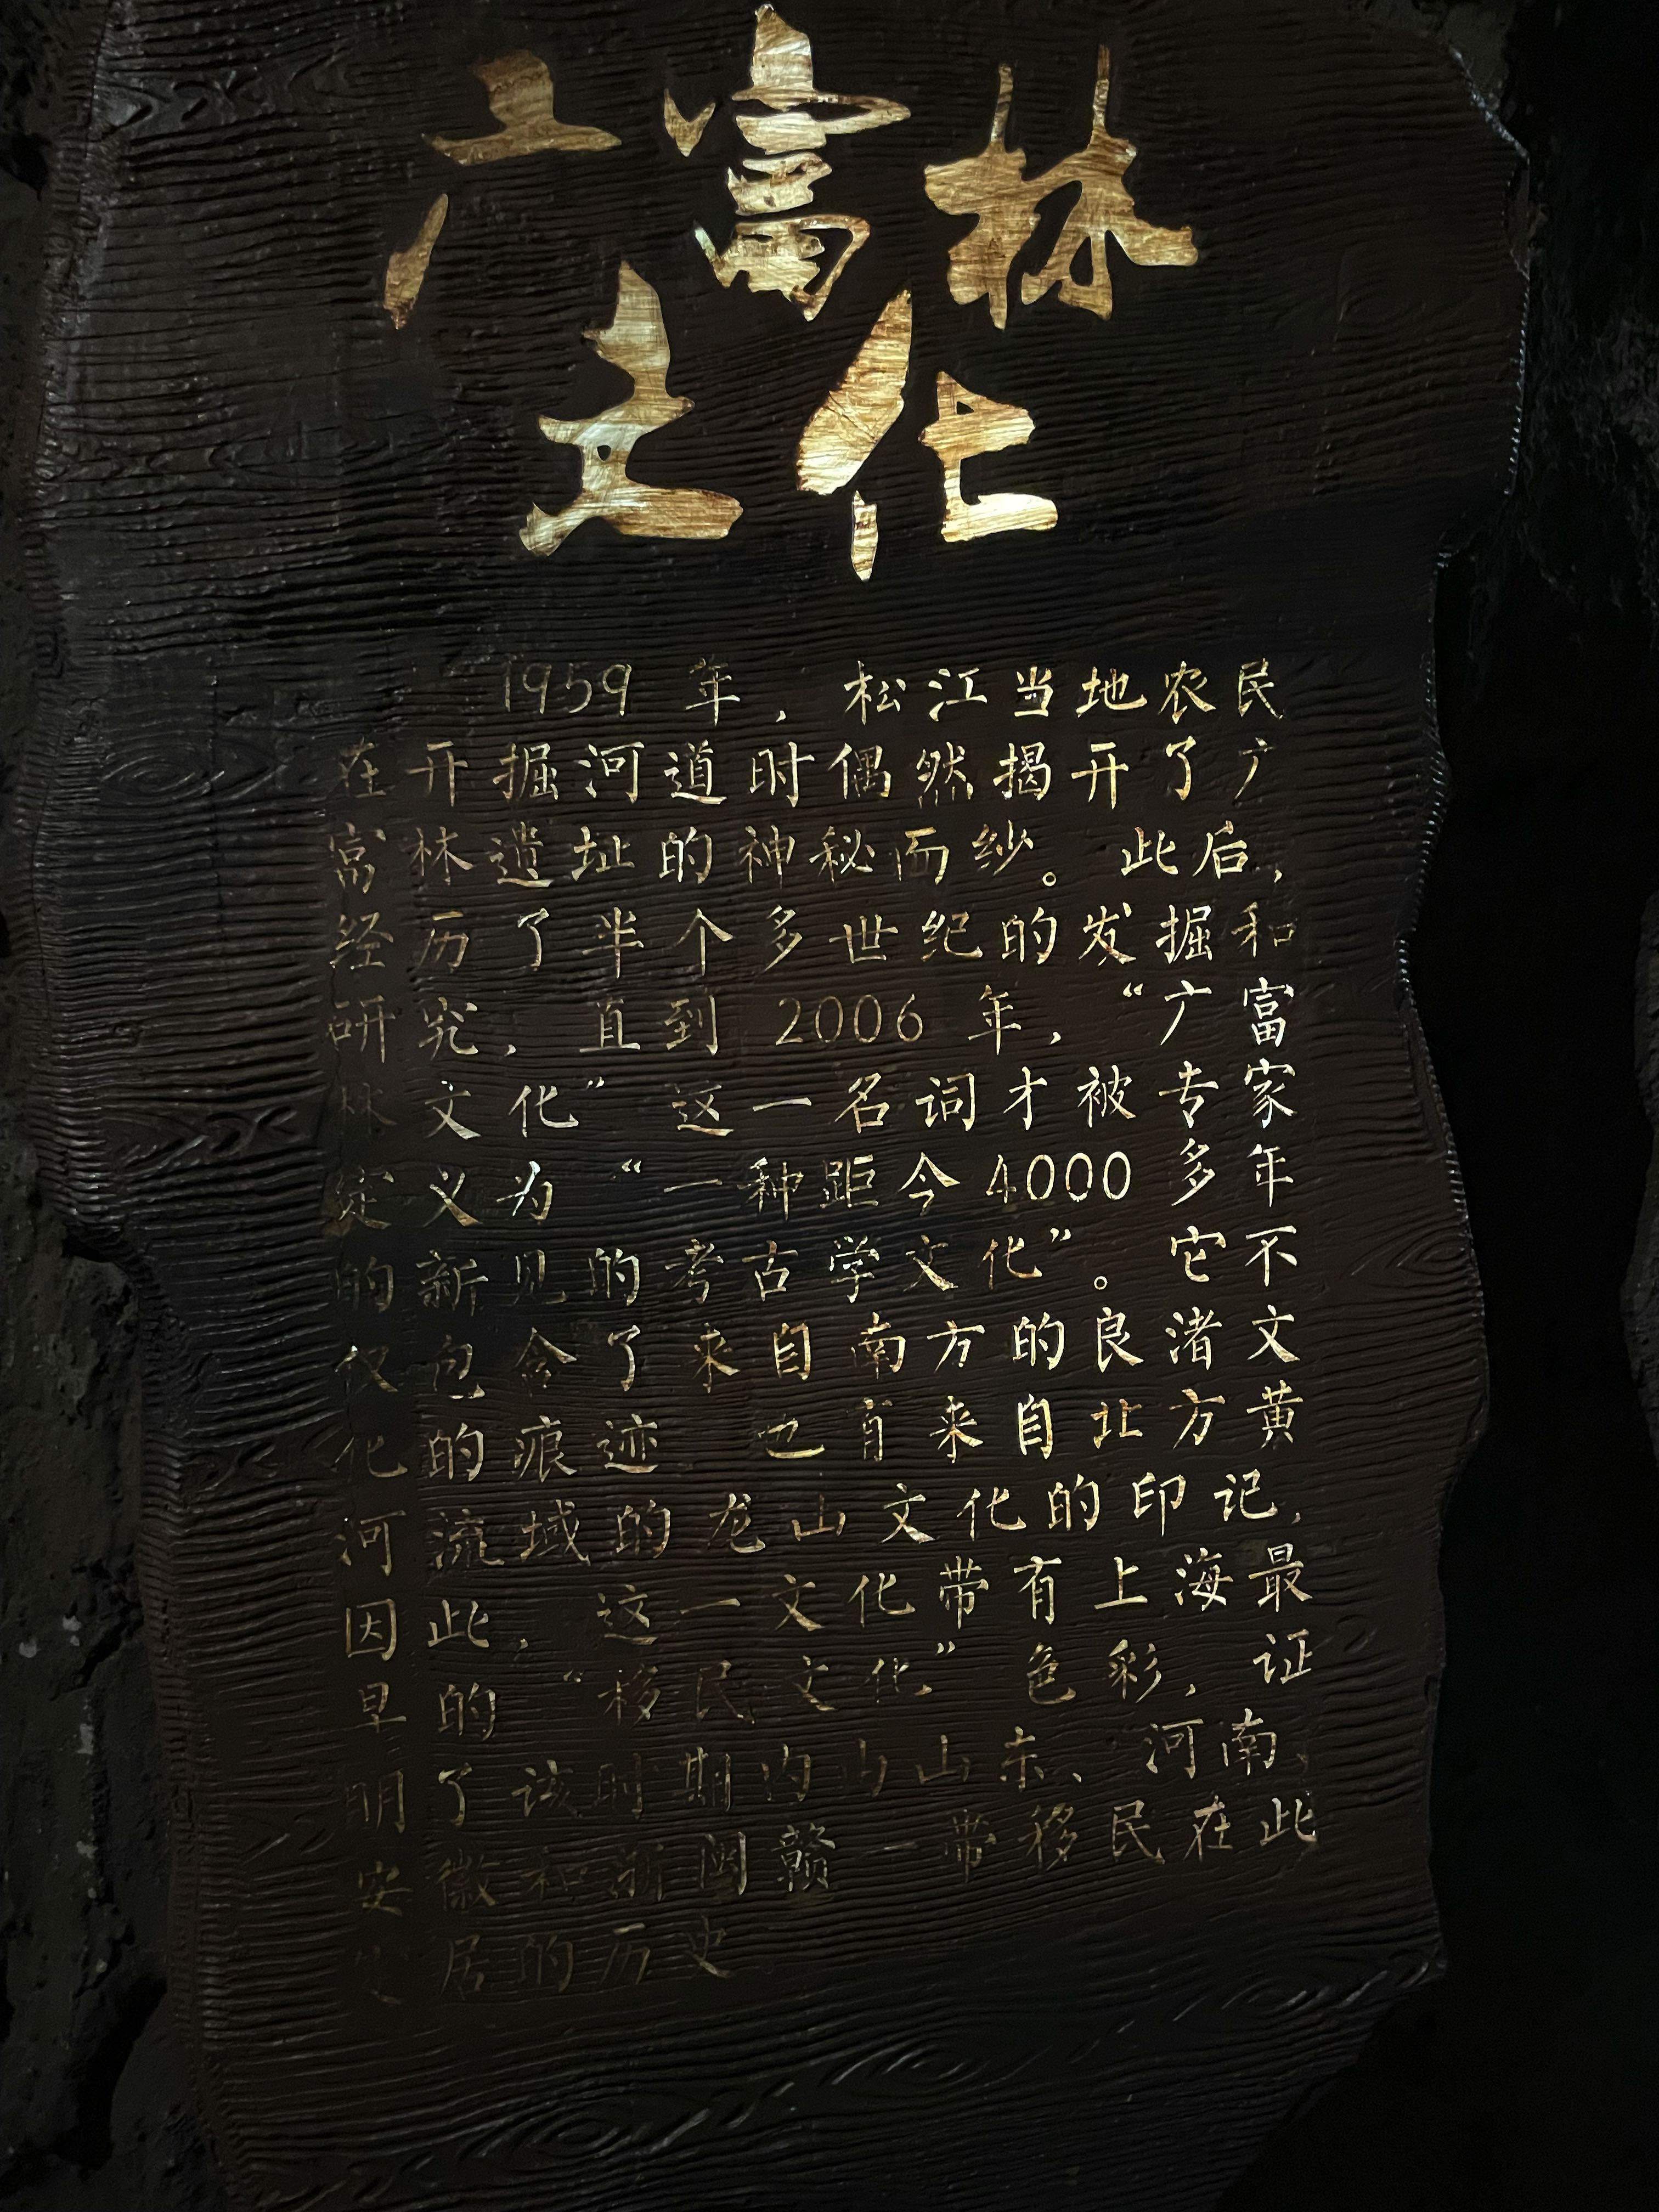 广富林
文化
1959 年，松江当地农民
在开掘河道时偶然揭开了广
富林遗址的神秘面纱。此后，
经历了半个多世纪的发掘和
研究，直到 2006 年，“广富
林文化”这一名词才被专家
定义为“一种距今4000多年
的新见的考古学文化”。它不
仅包含了来自南方的良渚文
化的痕迹 也有来自北方黄
河流域的龙山文化的印记，
因此，这一文化带有上海最
早的“移民文化”色彩，证
明了该时期内 山东、河南、
安徽和浙闽赣一带移民在此
居的历史